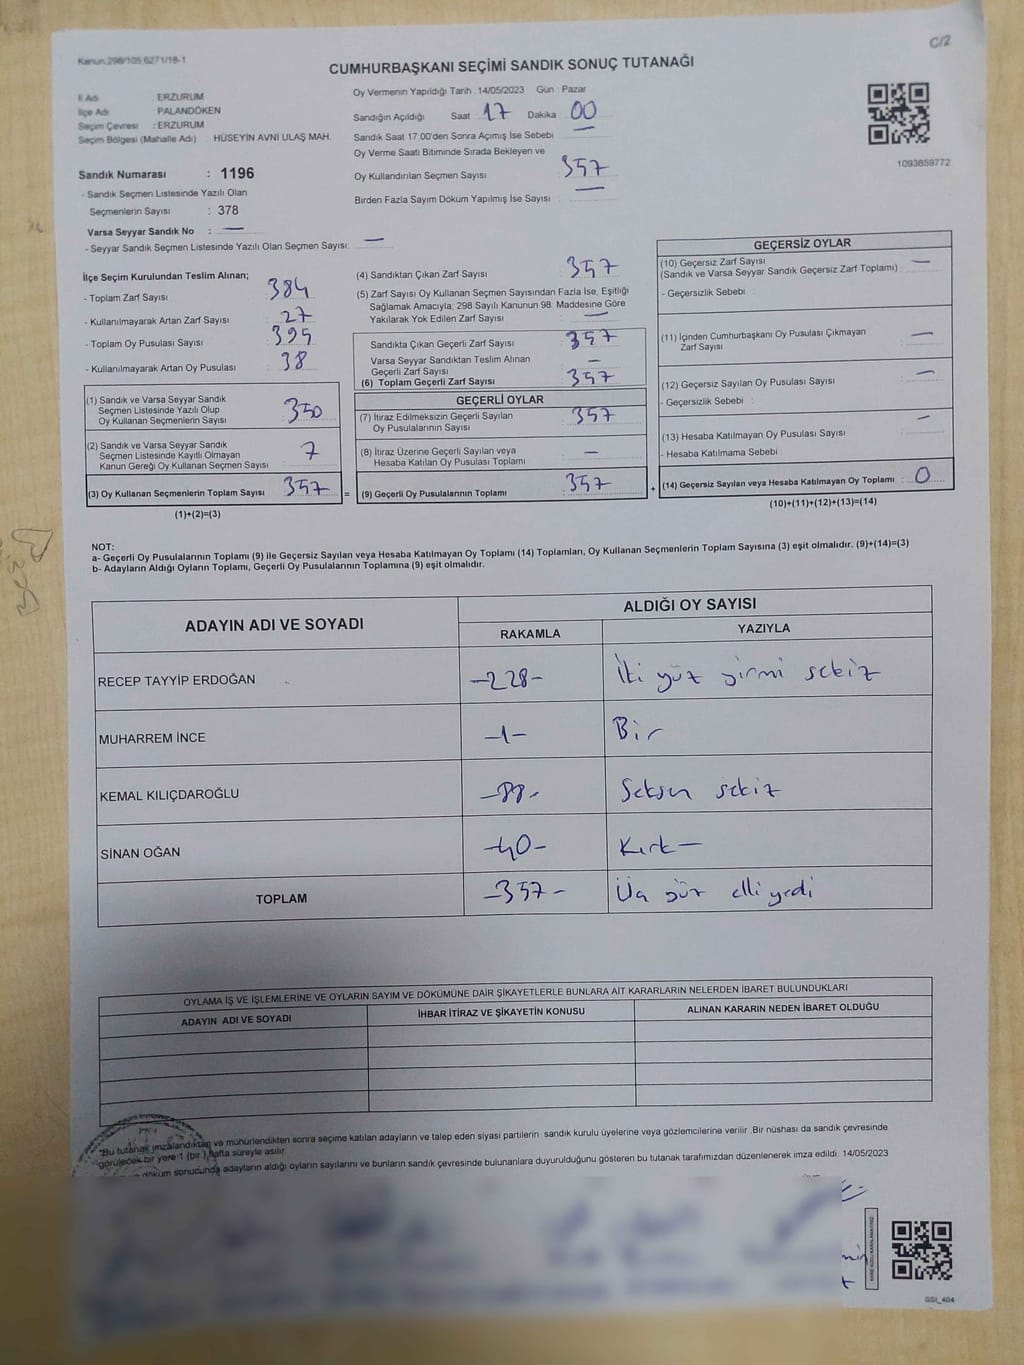 C/2
Kanun:298/105;6271/18-1
CUMHURBAŞKANI SEÇİMİ SANDIK SONUÇ TUTANAĞI
İl Adı : ERZURUM
İlçe Adı : PALANDÖKEN
Seçim Çevresi : ERZURUM
Seçim Bölgesi (Mahalle Adı) : HÜSEYİN AVNİ ULAŞ MAH.
Sandık Numarası : 1196
- Sandık Seçmen Listesinde Yazılı Olan
Seçmenlerin Sayısı : 378
Varsa Seyyar Sandık No : —
- Seyyar Sandık Seçmen Listesinde Yazılı Olan Seçmen Sayısı: —
Oy Vermenin Yapıldığı Tarih : 14/05/2023 Gün : Pazar
Sandığın Açıldığı Saat 17 Dakika 00
Sandık Saat 17:00'den Sonra Açımış İse Sebebi —
Oy Verme Saati Bitiminde Sırada Bekleyen ve
Oy Kullandırılan Seçmen Sayısı 357
Birden Fazla Sayım Döküm Yapılmış İse Sayısı —
1093859772
İlçe Seçim Kurulundan Teslim Alınan;
- Toplam Zarf Sayısı : 384
- Kullanılmayarak Artan Zarf Sayısı : 27
- Toplam Oy Pusulası Sayısı : 395
- Kullanılmayarak Artan Oy Pusulası : 38
(1) Sandık ve Varsa Seyyar Sandık
Seçmen Listesinde Yazılı Olup
Oy Kullanan Seçmenlerin Sayısı : 350
(2) Sandık ve Varsa Seyyar Sandık
Seçmen Listesinde Kayıtlı Olmayan
Kanun Gereği Oy Kullanan Seçmen Sayısı : 7
(3) Oy Kullanan Seçmenlerin Toplam Sayısı : 357
(1)+(2)=(3)
=
(4) Sandıktan Çıkan Zarf Sayısı : 357
(5) Zarf Sayısı Oy Kullanan Seçmen Sayısından Fazla İse, Eşitliği
Sağlamak Amacıyla; 298 Sayılı Kanunun 98. Maddesine Göre
Yakılarak Yok Edilen Zarf Sayısı : —
Sandıkta Çıkan Geçerli Zarf Sayısı : 357
Varsa Seyyar Sandıktan Teslim Alınan
Geçerli Zarf Sayısı : —
(6) Toplam Geçerli Zarf Sayısı : 357
GEÇERLİ OYLAR
(7) İtiraz Edilmeksizin Geçerli Sayılan
Oy Pusulalarının Sayısı : 357
(8) İtiraz Üzerine Geçerli Sayılan veya
Hesaba Katılan Oy Pusulası Toplamı : —
(9) Geçerli Oy Pusulalarının Toplamı : 357
+
GEÇERSİZ OYLAR
(10) Geçersiz Zarf Sayısı —
(Sandık ve Varsa Seyyar Sandık Geçersiz Zarf Toplamı) :
- Geçersizlik Sebebi :
(11) İçinden Cumhurbaşkanı Oy Pusulası Çıkmayan
Zarf Sayısı : —
(12) Geçersiz Sayılan Oy Pusulası Sayısı : —
- Geçersizlik Sebebi :
(13) Hesaba Katılmayan Oy Pusulası Sayısı : —
- Hesaba Katılmama Sebebi :
(14) Geçersiz Sayılan veya Hesaba Katılmayan Oy Toplamı : 0
(10)+(11)+(12)+(13)=(14)
NOT:
a- Geçerli Oy Pusulalarının Toplamı (9) ile Geçersiz Sayılan veya Hesaba Katılmayan Oy Toplamı (14) Toplamları, Oy Kullanan Seçmenlerin Toplam Sayısına (3) eşit olmalıdır. (9)+(14)=(3)
b- Adayların Aldığı Oyların Toplamı, Geçerli Oy Pusulalarının Toplamına (9) eşit olmalıdır.
ADAYIN ADI VE SOYADI
ALDIĞI OY SAYISI
RAKAMLA YAZIYLA
RECEP TAYYİP ERDOĞAN -228- İki yüz yirmi sekiz
MUHARREM İNCE -1- Bir
KEMAL KILIÇDAROĞLU -88- Seksen sekiz
SİNAN OĞAN -40- Kırk —
TOPLAM -357- Üç yüz elli yedi
OYLAMA İŞ VE İŞLEMLERİNE VE OYLARIN SAYIM VE DÖKÜMÜNE DAİR ŞİKAYETLERLE BUNLARA AİT KARARLARIN NELERDEN İBARET BULUNDUKLARI
ADAYIN ADI VE SOYADI İHBAR İTİRAZ VE ŞİKAYETİN KONUSU ALINAN KARARIN NEDEN İBARET OLDUĞU
*Bu tutanak imzalandıktan ve mühürlendikten sonra seçime katılan adayların ve talep eden siyasi partilerin sandık kurulu üyelerine veya gözlemcilerine verilir. Bir nüshası da sandık çevresinde
görülecek bir yere 1 (bir) hafta süreyle asılır.
döküm sonucunda adayların aldığı oyların sayılarını ve bunların sandık çevresinde bulunanlara duyurulduğunu gösteren bu tutanak tarafımızdan düzenlenerek imza edildi. 14/05/2023
GSI_404